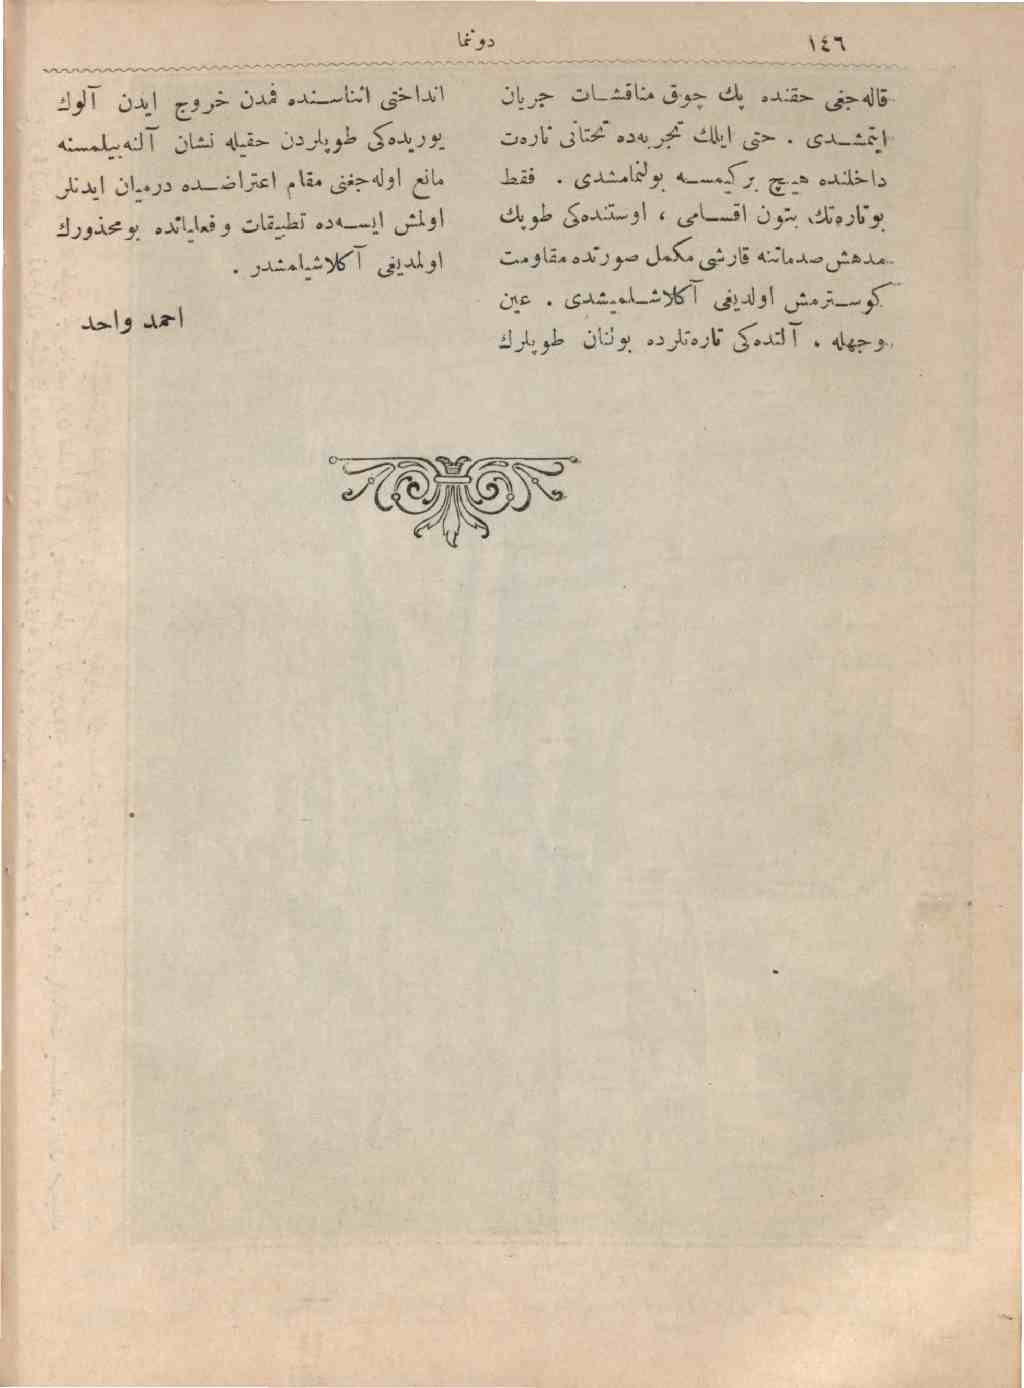 ١٤٦
دوننما
قاله‌جغی حقنده پك چوق مناقشات جریان
ایتمشدی . حتی ایلك تجربه‌ده تحتانی تاره‌ت
داخلنده هیچ بر کیمسه بولنمامشدی . فقط
بو تاره‌تك بتون اقسامی ، اوستنده‌کی طوپك
مدهش صدماتنه قارشی مکمل صورتده مقاومت
کوسترمش اولدیغی آکلاشلمیشدی . عین
وجهله ، آلتده‌کی تاره‌تلرده بولنان طوپلرك
انداختی اثناسنده فمدن خروج ایدن آلوك
یوریده‌کی طوپلردن حقیله نشان آلنه‌بیلمسنه
مانع اوله‌جغنی مقام اعتراضده درمیان ایدنلر
اولمش ایسه‌ده تطبیقات و فعلیاتده بو محذورك
اولمدیغی آکلاشیلمشدر .
احمد واحد